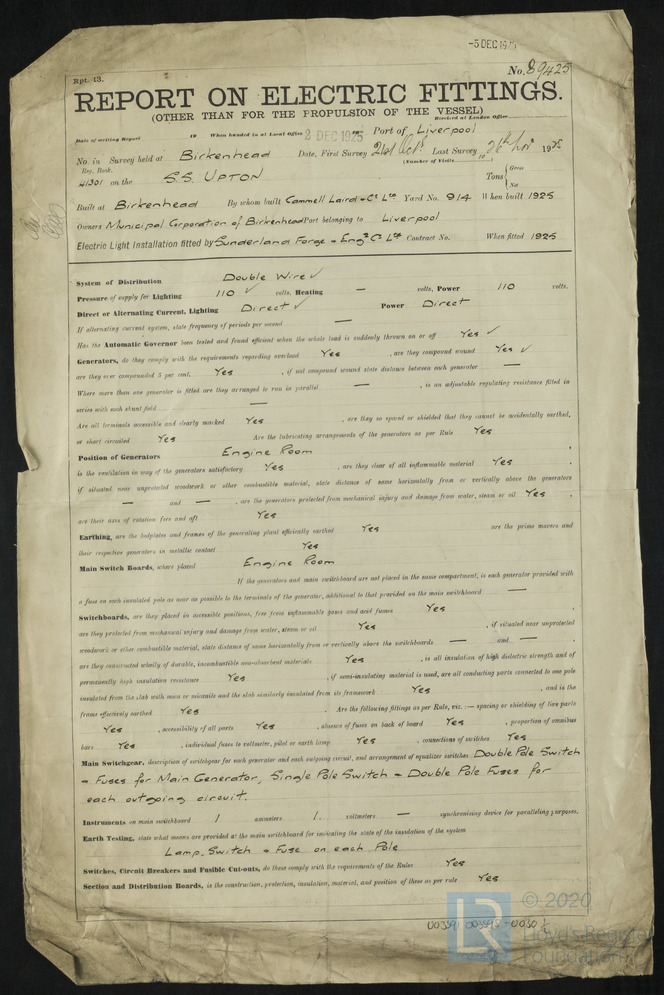 -5 DEC 19
Rpt. 13.
No. 89425
REPORT ON ELECTRIC FITTINGS.
(OTHER THAN FOR THE PROPULSION OF THE VESSEL)
Received at London Office
Date of writing Report 19 When handed in at Local Office 2 DEC 1925 Port of Liverpool
No. in Survey held at Birkenhead Date, First Survey 21st Octr Last Survey 26th Novr 1925
(Number of Visits
Reg. Book.
41301 on the S.S. UPTON Tons { Gross
Net
Built at Birkenhead By whom built Cammell Laird & Co Ltd Yard No. 914 When built 1925
Owners Municipal Corporation of Birkenhead Port belonging to Liverpool
Electric Light Installation fitted by Sunderland Forge & Engg Co Ltd Contract No. When fitted 1925
System of Distribution Double Wire ✓
Pressure of supply for Lighting 110 ✓ volts, Heating — volts, Power 110 volts.
Direct or Alternating Current, Lighting Direct ✓ Power Direct
If alternating current system, state frequency of periods per second —
Has the Automatic Governor been tested and found efficient when the whole load is suddenly thrown on or off Yes ✓
Generators, do they comply with the requirements regarding overload Yes , are they compound wound Yes ✓
are they over compounded 5 per cent. Yes , if not compound wound state distance between each generator —
Where more than one generator is fitted are they arranged to run in parallel — , is an adjustable regulating resistance fitted in
series with each shunt field —
Are all terminals accessible and clearly marked Yes , are they so spaced or shielded that they cannot be accidentally earthed,
or short circuited Yes Are the lubricating arrangements of the generators as per Rule Yes
Position of Generators Engine Room
is the ventilation in way of the generators satisfactory Yes , are they clear of all inflammable material Yes
if situated near unprotected woodwork or other combustible material, state distance of same horizontally from or vertically above the generators
— and — , are the generators protected from mechanical injury and damage from water, steam or oil Yes
are their axes of rotation fore and aft Yes
Earthing, are the bedplates and frames of the generating plant efficiently earthed Yes are the prime movers and
their respective generators in metallic contact Yes
Main Switch Boards, where placed Engine Room
If the generators and main switchboard are not placed in the same compartment, is each generator provided with
a fuse on each insulated pole as near as possible to the terminals of the generator, additional to that provided on the main switchboard —
Switchboards, are they placed in accessible positions, free from inflammable gases and acid fumes Yes
are they protected from mechanical injury and damage from water, steam or oil Yes , if situated near unprotected
woodwork or other combustible material, state distance of same horizontally from or vertically above the switchboards — and —
are they constructed wholly of durable, incombustible non-absorbent materials Yes , is all insulation of high dielectric strength and of
permanently high insulation resistance Yes , if semi-insulating material is used, are all conducting parts connected to one pole
insulated from the slab with mica or micanite and the slab similarly insulated from its framework Yes , and is the
frame effectively earthed Yes . Are the following fittings as per Rule, viz.:— spacing or shielding of live parts
Yes , accessibility of all parts Yes , absence of fuses on back of board Yes , proportion of omnibus
bars Yes , individual fuses to voltmeter, pilot or earth lamp Yes , connections of switches Yes
Main Switchgear, description of switchgear for each generator and each outgoing circuit, and arrangement of equalizer switches Double Pole Switch
& Fuses for Main Generator, Single Pole Switch & Double Pole Fuses for
each outgoing circuit.
Instruments on main switchboard 1 ammeters 1 voltmeters — synchronising device for paralleling purposes.
Earth Testing, state what means are provided at the main switchboard for indicating the state of the insulation of the system
Lamp, Switch & Fuse on each Pole
Switches, Circuit Breakers and Fusible Cut-outs, do these comply with the requirements of the Rules Yes
Section and Distribution Boards, is the construction, protection, insulation, material, and position of these as per rule Yes
LR
© 2020
Lloyd's Register
Foundation